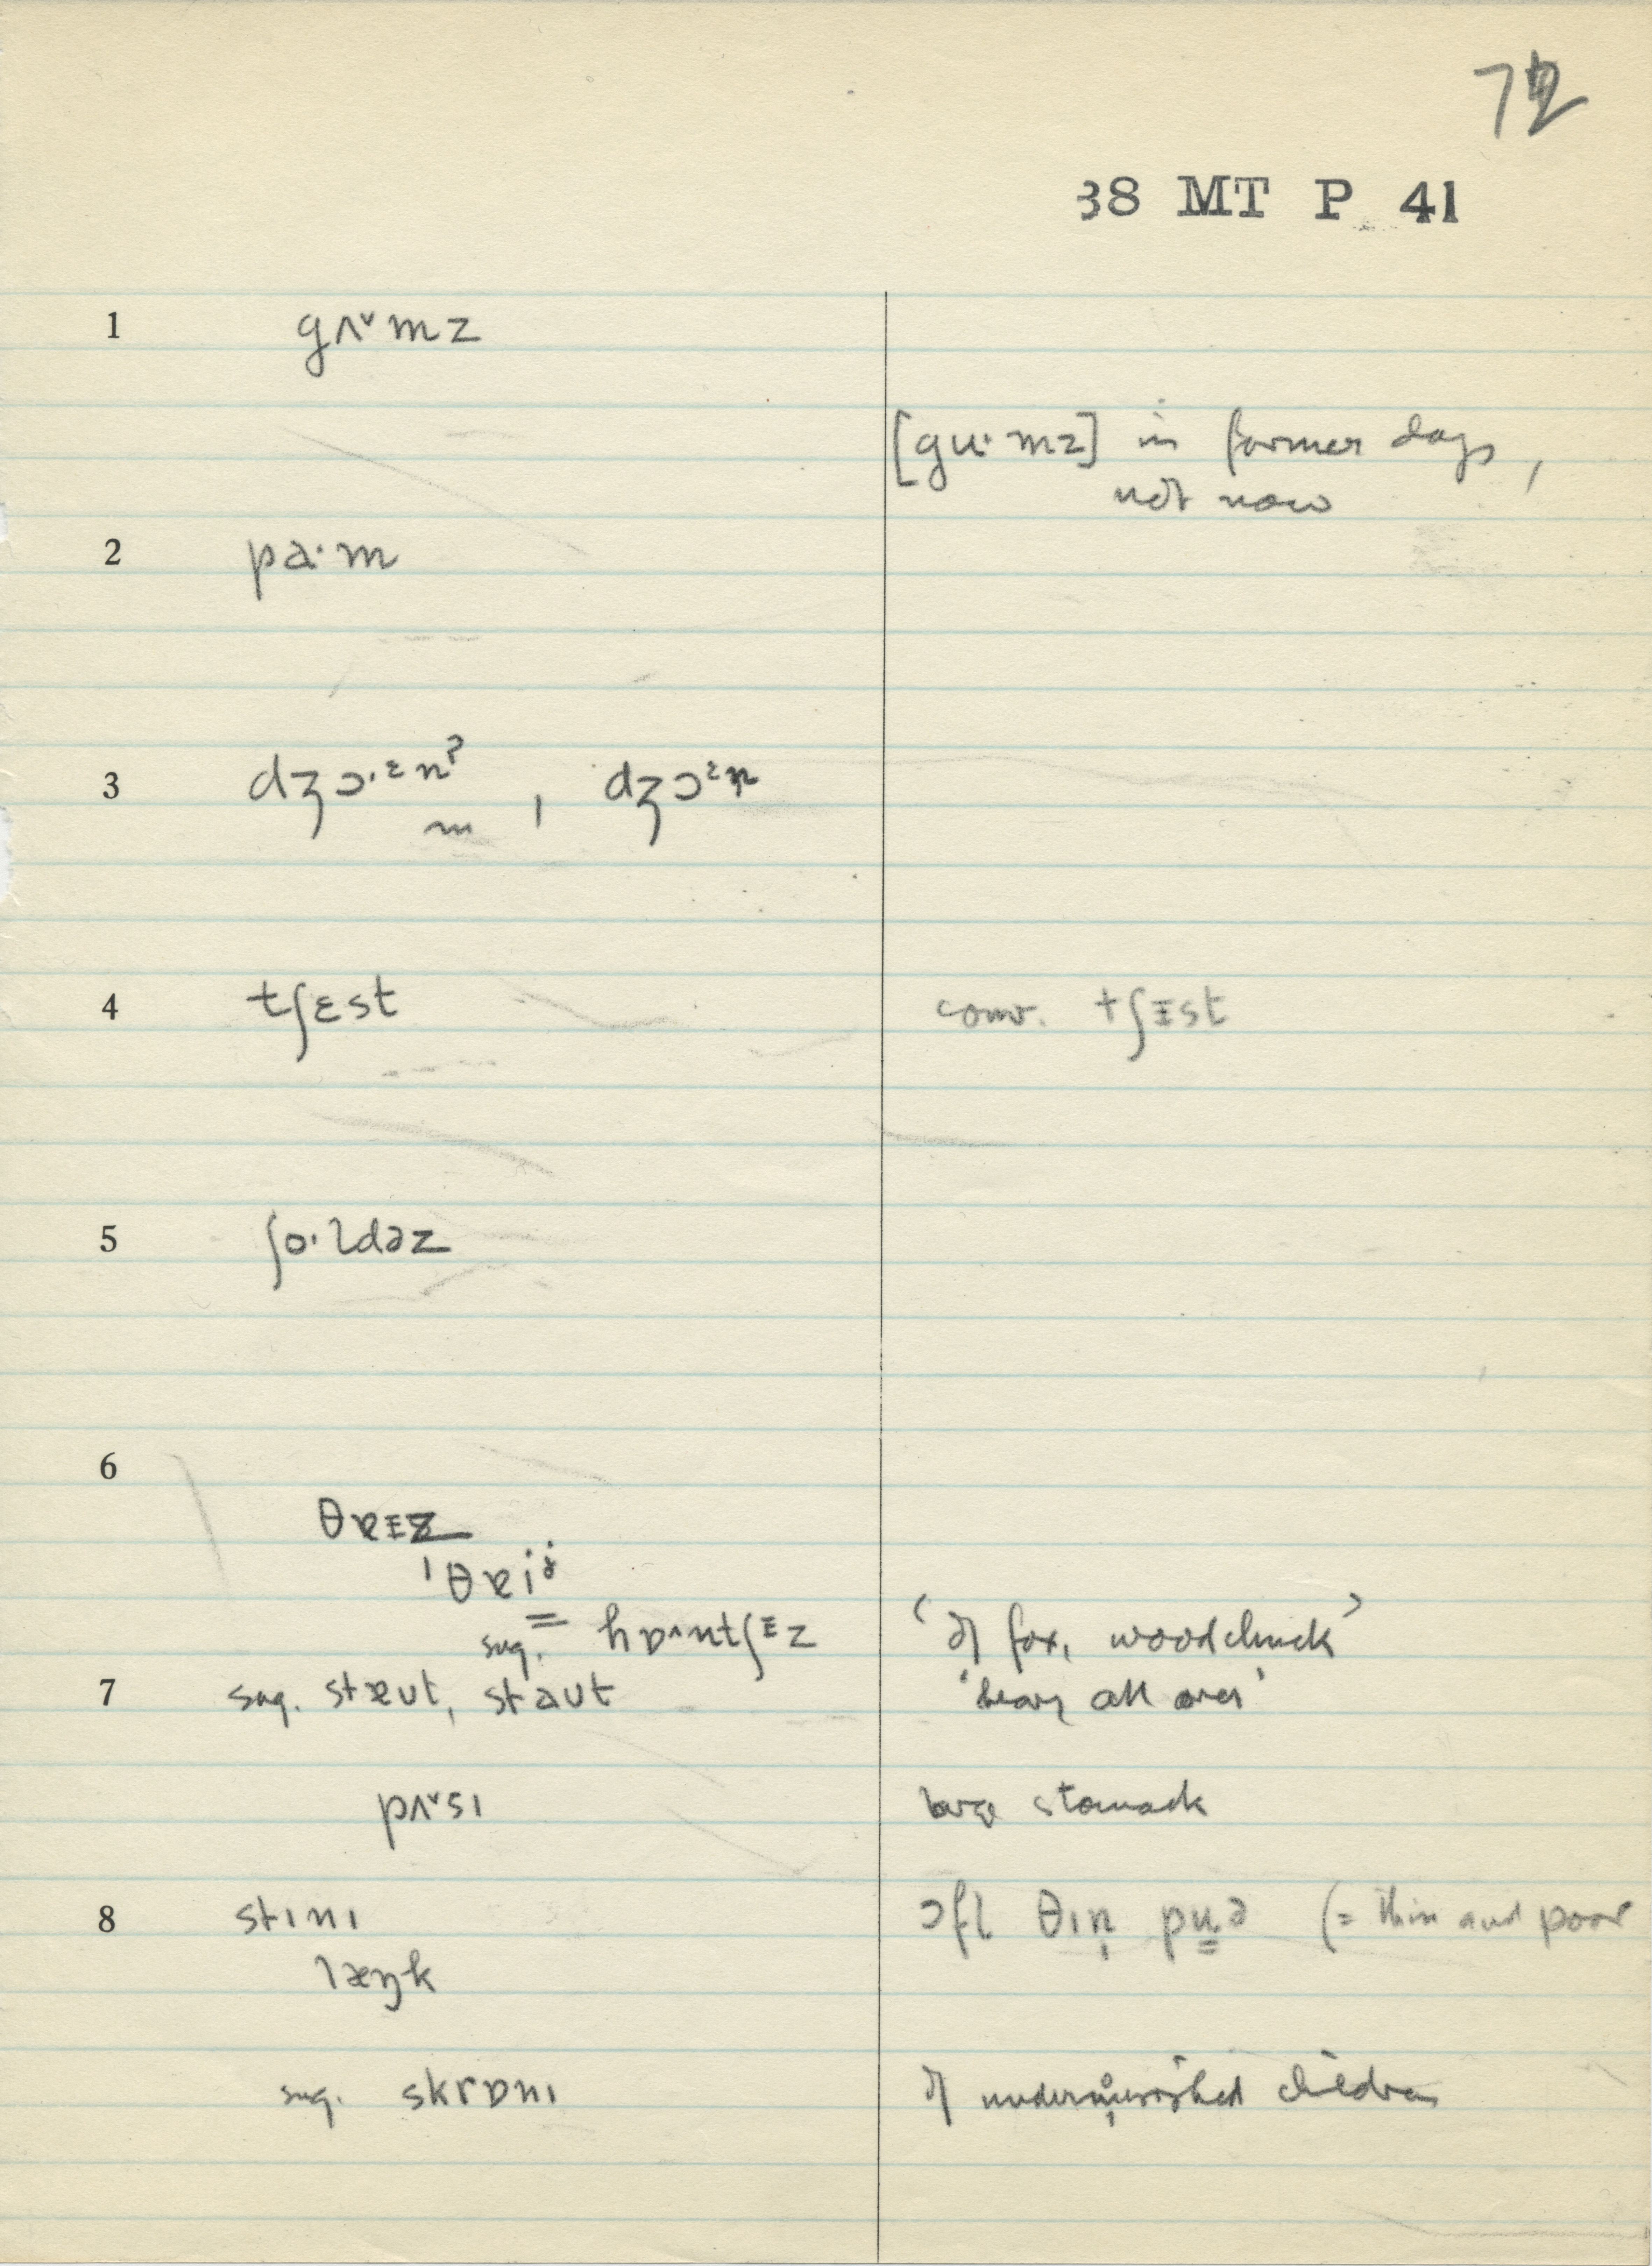 72
38 MT P 41
1 gʌ˅mz
[gu·mz] in former days,
not now
2 pa·m
3 dʒɔ·ᵋnˀ, dʒɔᵋn
m
4 tʃɛst conv. tʃɪst
5 ʃo·ldəz
6
θʀɪz
ˈθʀiʲ
sug. hɒ^ntʃᵻz ‘of fox, woodchuck’
7 sug. stɐut, staut ‘heavy all over’
pʌ˅sɪ large stomach
8 stɪnɪ ɔfl θɪn pu̳ə (= thin and poor
læŋk
sug. skrɒnɪ of undernourished children